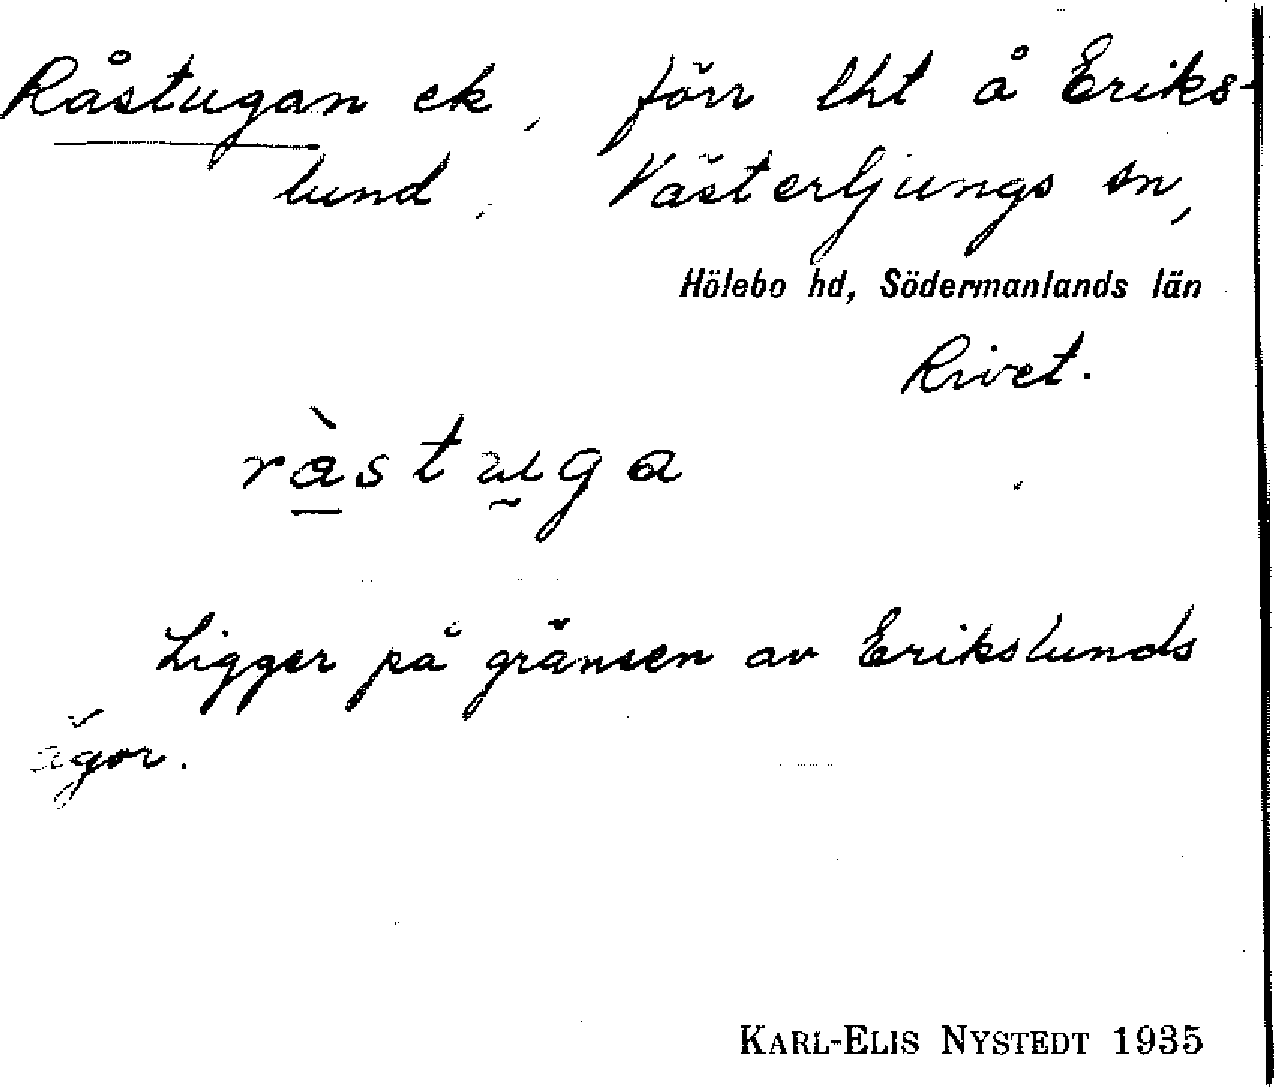 Råstugan ek, förr lht å Eriks-
lund. Västerljungs sn,
Hölebo hd, Södermanlands län
Rivet.
ràstuga
Ligger på gränsen av Erikslunds
ägor.
KARL-ELIS NYSTEDT 1935